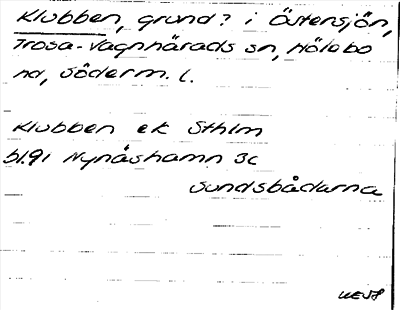 Klubben, grund? i Östensjön,
Trosa-Vagnhärads sn, Hölebo
hd, Söderm. l.
Klubben ek Sthlm
bl.91 Nynäshamn Sc
Sundsbådarna